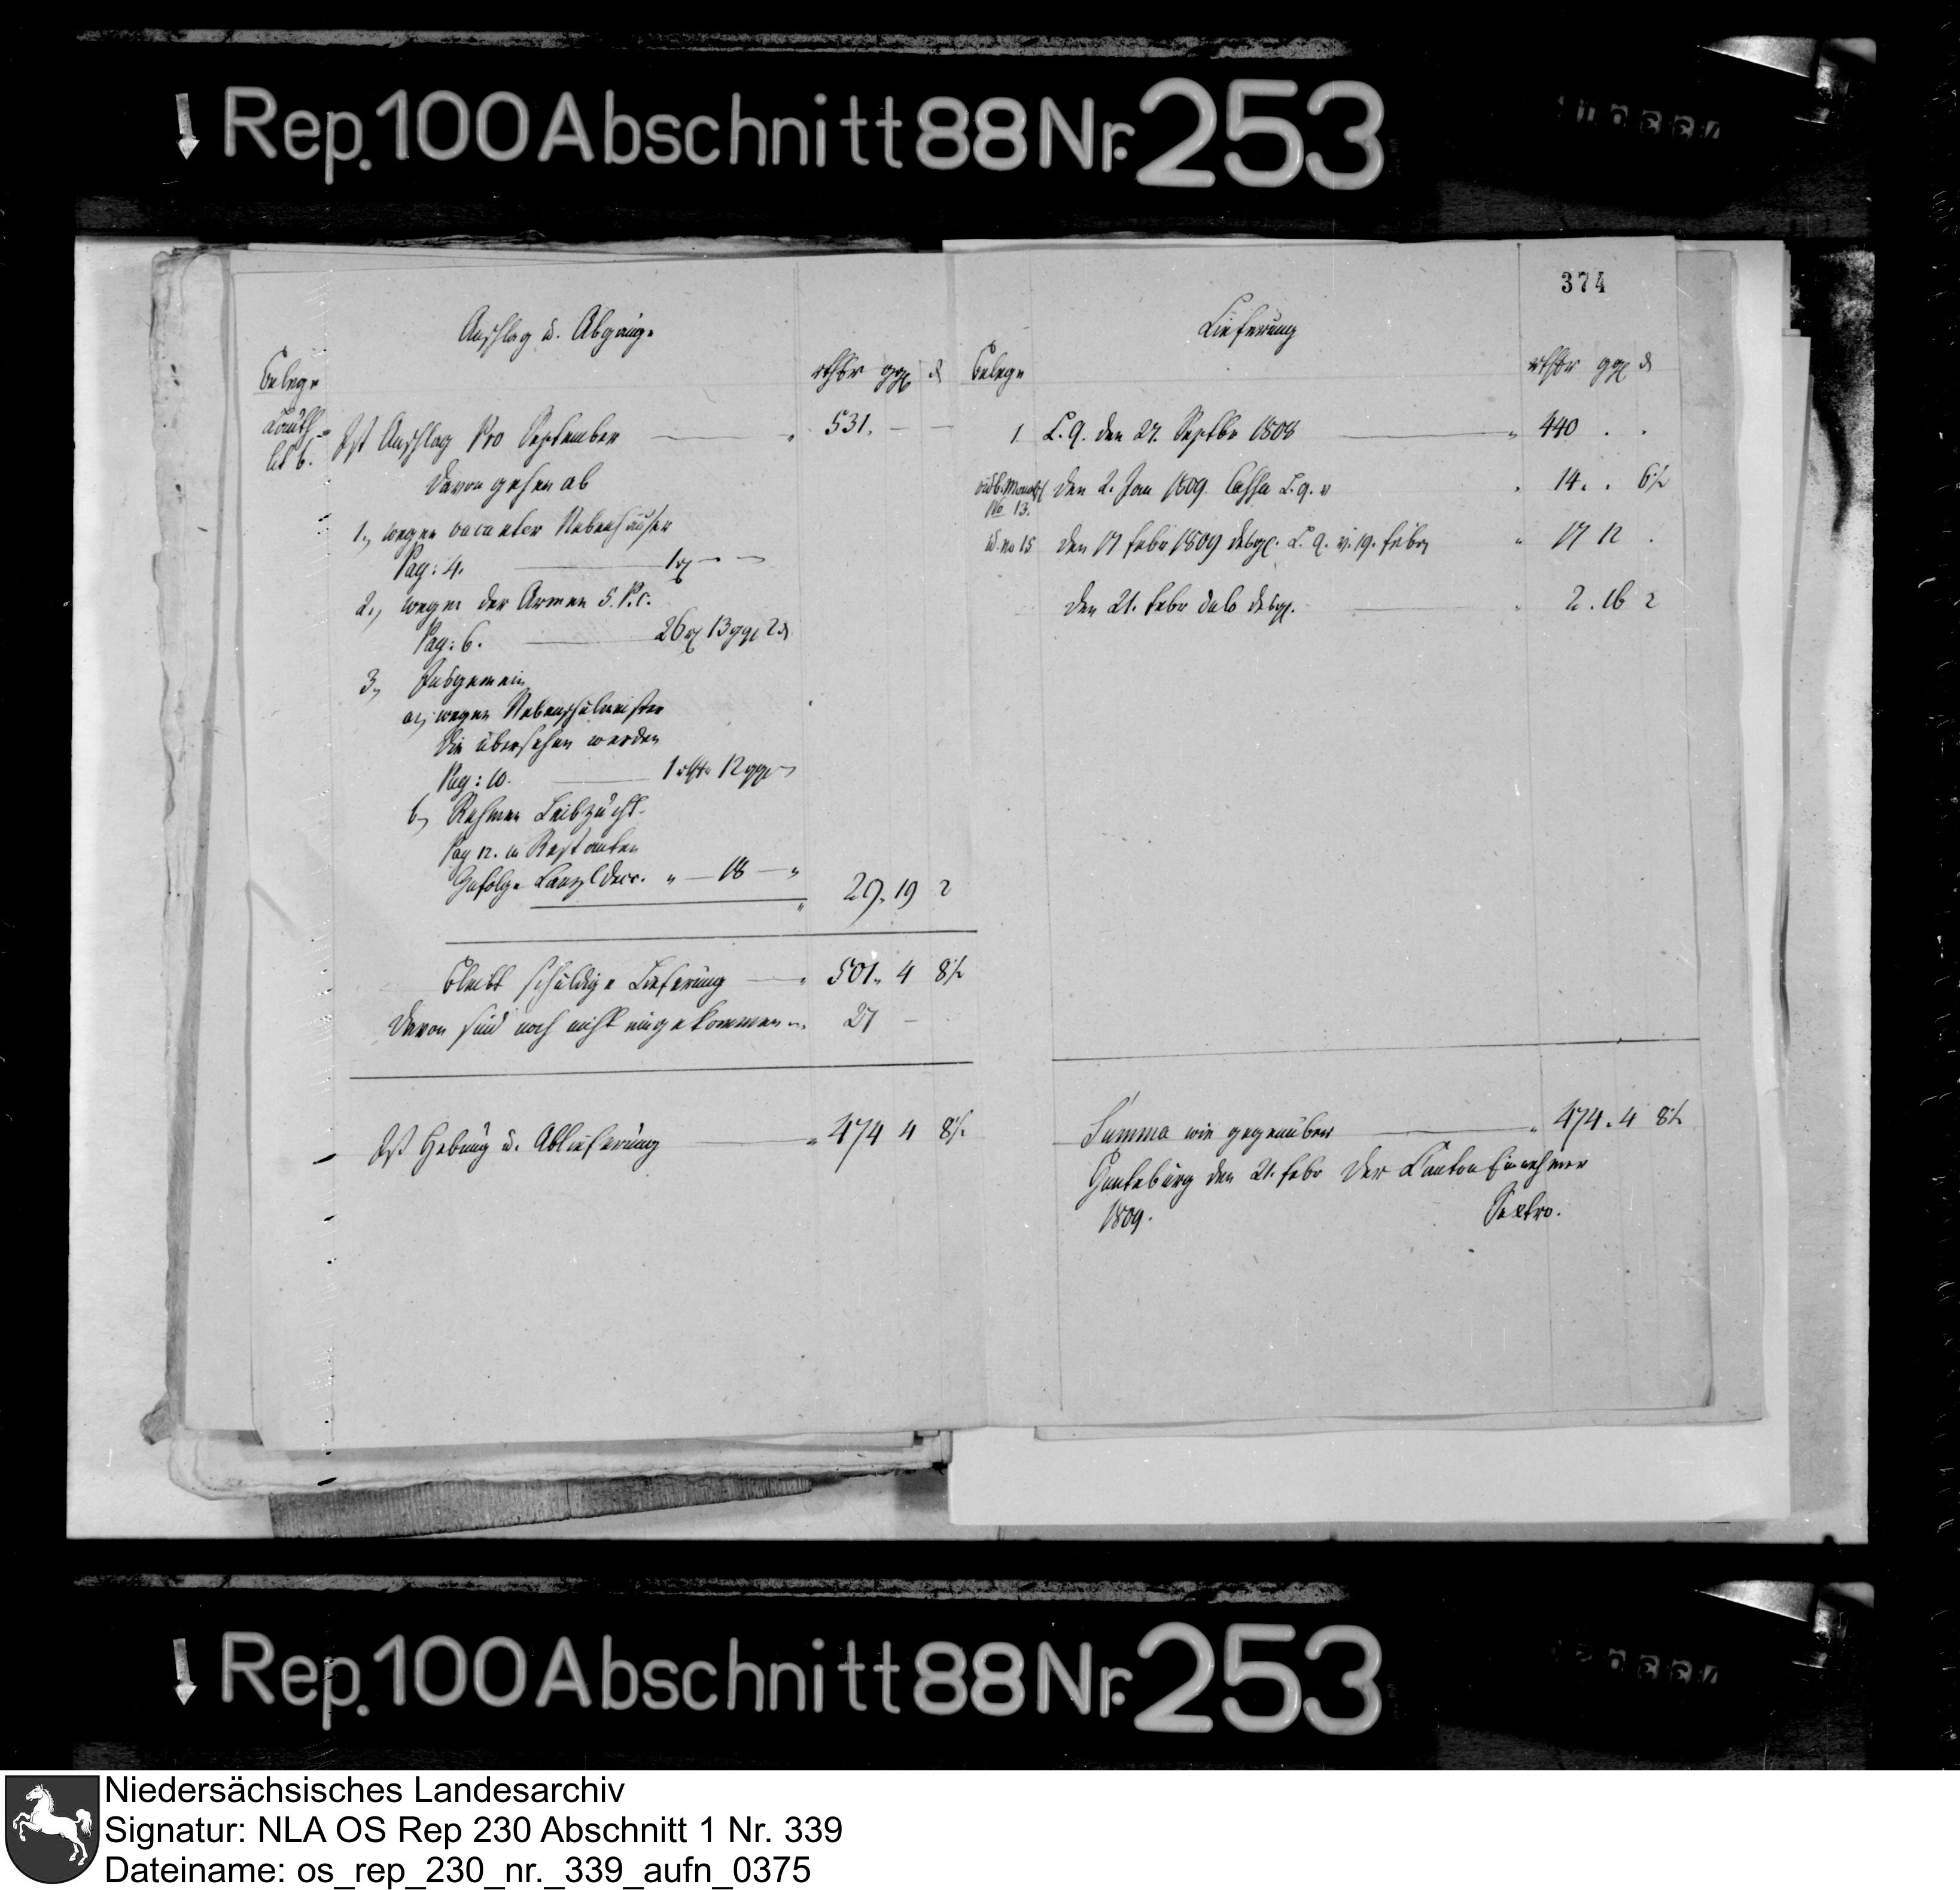 Rep. 100 Abschnitt 88 Nr. 253
374
Anschlag u. Abgänge
Belege
rthlr ggl d
lit b. Ist Anschlag Pro September 531. — —
davon gehen ab
1., wegen vacanter Nebenhäuser
Pag: 4. 1 — —
2., wegen der Armen 5. P.c.
Pag: 6. 26 13 ggl 2 d
3, Insgemein
a, wegen
die übersehen werden
Pag: 10. 1 rthr 12 ggl —
b, Rahmen Leibzucht
Pag 12. in Restanten
Zufolge Decr. " — 18 — "
29. 19 2
bleibt schuldige Lieferung 501. 4 8½
davon sind noch nicht eingekommen 27 —
Ist Hebung u. Ablieferung 474 4 8½
Lieferung
Belege
rthlr ggl d
1 L. Q. den 27. Septbr 1808 440 . .
No 13. den 2. Jan 1809. Cassa L. Q. 14. . 6½
u. no 15 den 17 febr 1809 desgl. L. Q. v. 19. febr 17 12 .
den 21. febr dato desgl. 2. 16 2
Summa wie gegenüber 474. 4 8½
den 21. febr Der Canton Einnehmer
1809. Sextro.
Rep. 100 Abschnitt 88 Nr. 253
Niedersächsisches Landesarchiv
Signatur: NLA OS Rep 230 Abschnitt 1 Nr. 339
Dateiname: os_rep_230_nr._339_aufn_0375